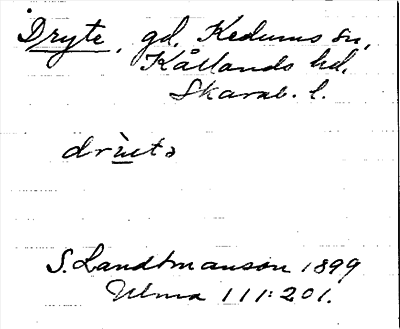 Dryte, gd, Kedums sn,
Kållands hd.
Skarab. l.
drùetə
S. Landtmanson 1899
Ulma 111:201.